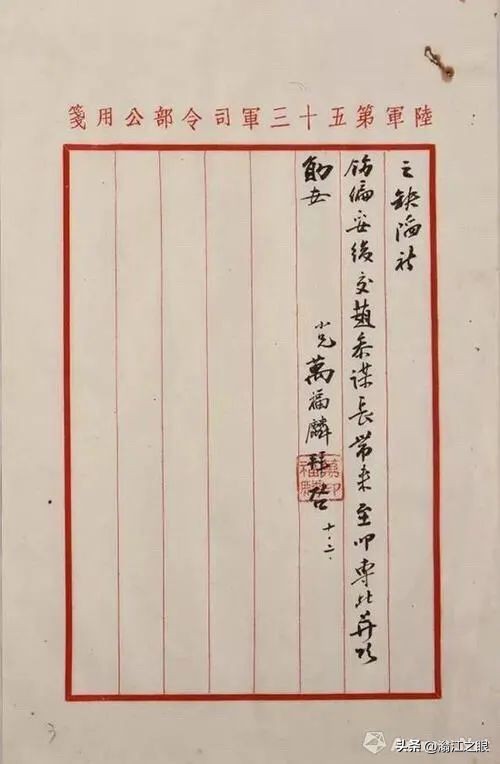 陸軍第五十三軍司令部公用箋
之缺陷祈
飭編妥後交趙參謀長帶來至叩專此并頌
勛安
小兄萬福麟拜啓
萬福麟印
十、二、
3
头条 @滃江之眼